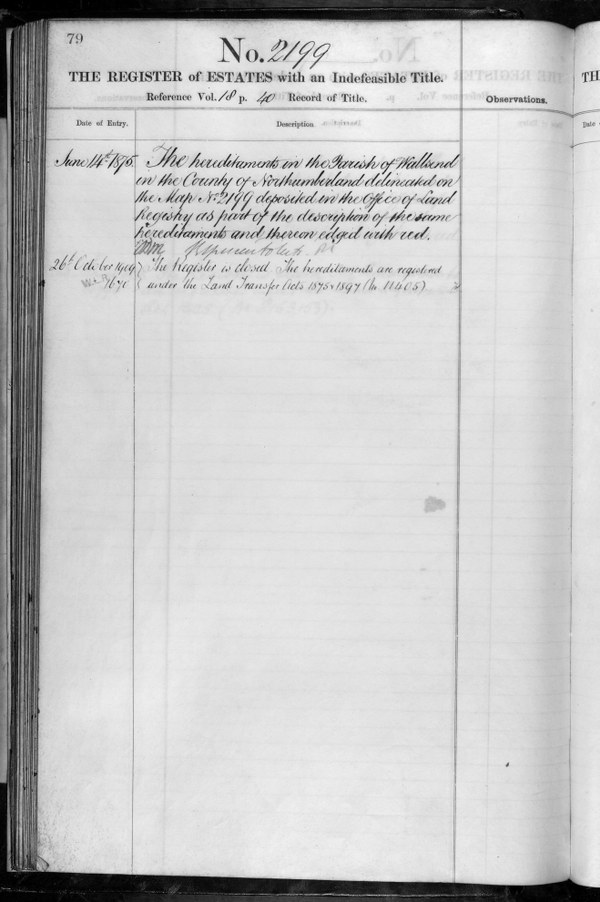 79
No. 2199
THE REGISTER of ESTATES with an Indefeasible Title.
Reference Vol. 18 p. 40 Record of Title.
Observations.
Date of Entry.
Description
June 14th 1875.
The hereditaments in the Parish of Wallsend
in the County of Northumberland delineated on
the Map No. 2199 deposited in the Office of Land
Registry as part of the description of the same
hereditaments and thereon edged with red.
26th October 1909
The Register is closed. The hereditaments are registered
7670
under the Land Transfer Acts 1875 & 1897 (No. 11405)
TH
Date